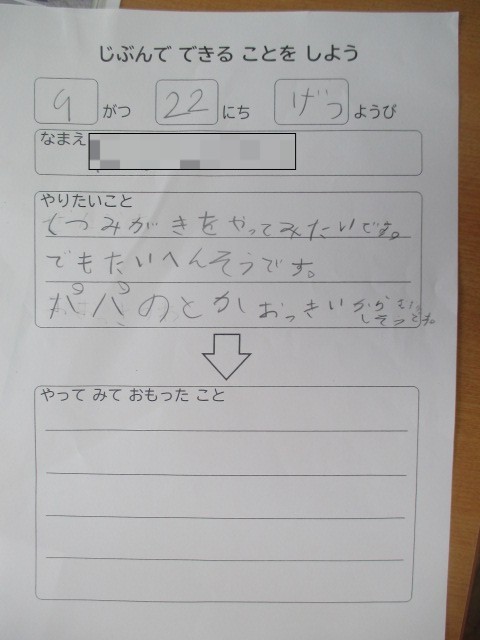 じぶんで できる ことを しよう
9 がつ 22 にち げつ ようび
なまえ
やりたいこと
くつみがきをやってみたいです。
でもたいへんそうです。
パパのとかおっきいから
やって みて おもった こと